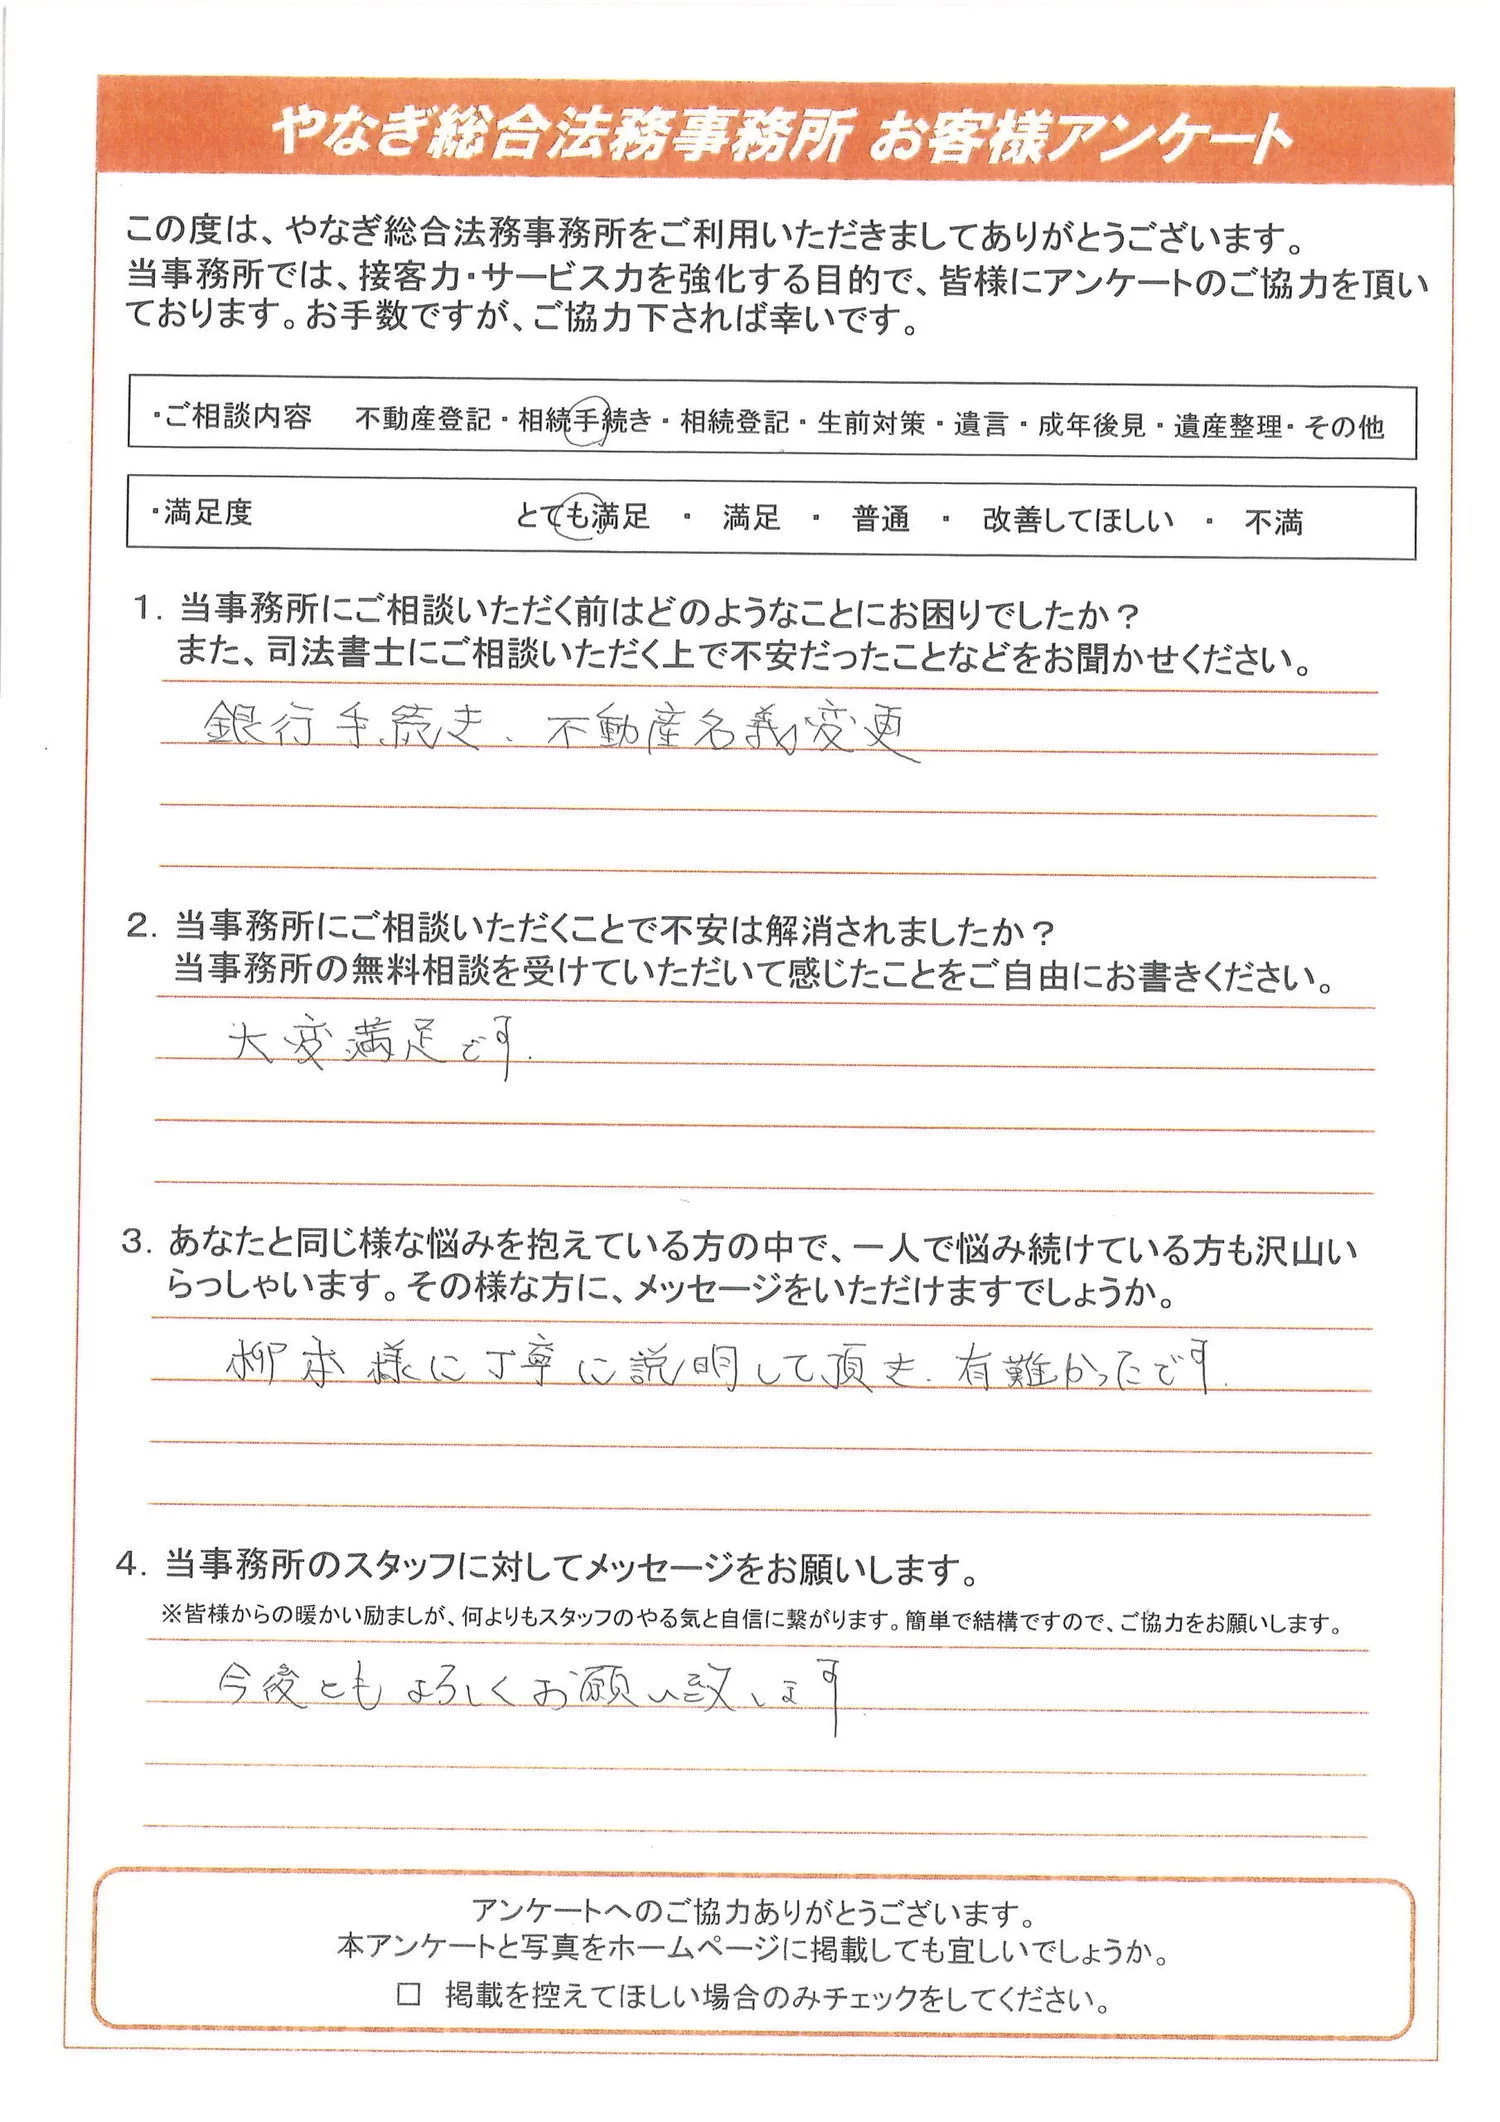 やなぎ総合法務事務所 お客様アンケート
この度は、やなぎ総合法務事務所をご利用いただきましてありがとうございます。
当事務所では、接客力・サービス力を強化する目的で、皆様にアンケートのご協力を頂い
ております。お手数ですが、ご協力下されば幸いです。
・ご相談内容 不動産登記・相続手続き・相続登記・生前対策・遺言・成年後見・遺産整理・その他
・満足度 とても満足 ・ 満足 ・ 普通 ・ 改善してほしい ・ 不満
1. 当事務所にご相談いただく前はどのようなことにお困りでしたか？
また、司法書士にご相談いただく上で不安だったことなどをお聞かせください。
銀行手続き、不動産名義変更
2. 当事務所にご相談いただくことで不安は解消されましたか？
当事務所の無料相談を受けていただいて感じたことをご自由にお書きください。
大変満足です.
3. あなたと同じ様な悩みを抱えている方の中で、一人で悩み続けている方も沢山い
らっしゃいます。その様な方に、メッセージをいただけますでしょうか。
柳本様に丁寧に説明して頂き、有難かったです.
4. 当事務所のスタッフに対してメッセージをお願いします。
※皆様からの暖かい励ましが、何よりもスタッフのやる気と自信に繋がります。簡単で結構ですので、ご協力をお願いします。
今後ともよろしくお願い致します
アンケートへのご協力ありがとうございます。
本アンケートと写真をホームページに掲載しても宜しいでしょうか。
□ 掲載を控えてほしい場合のみチェックをしてください。